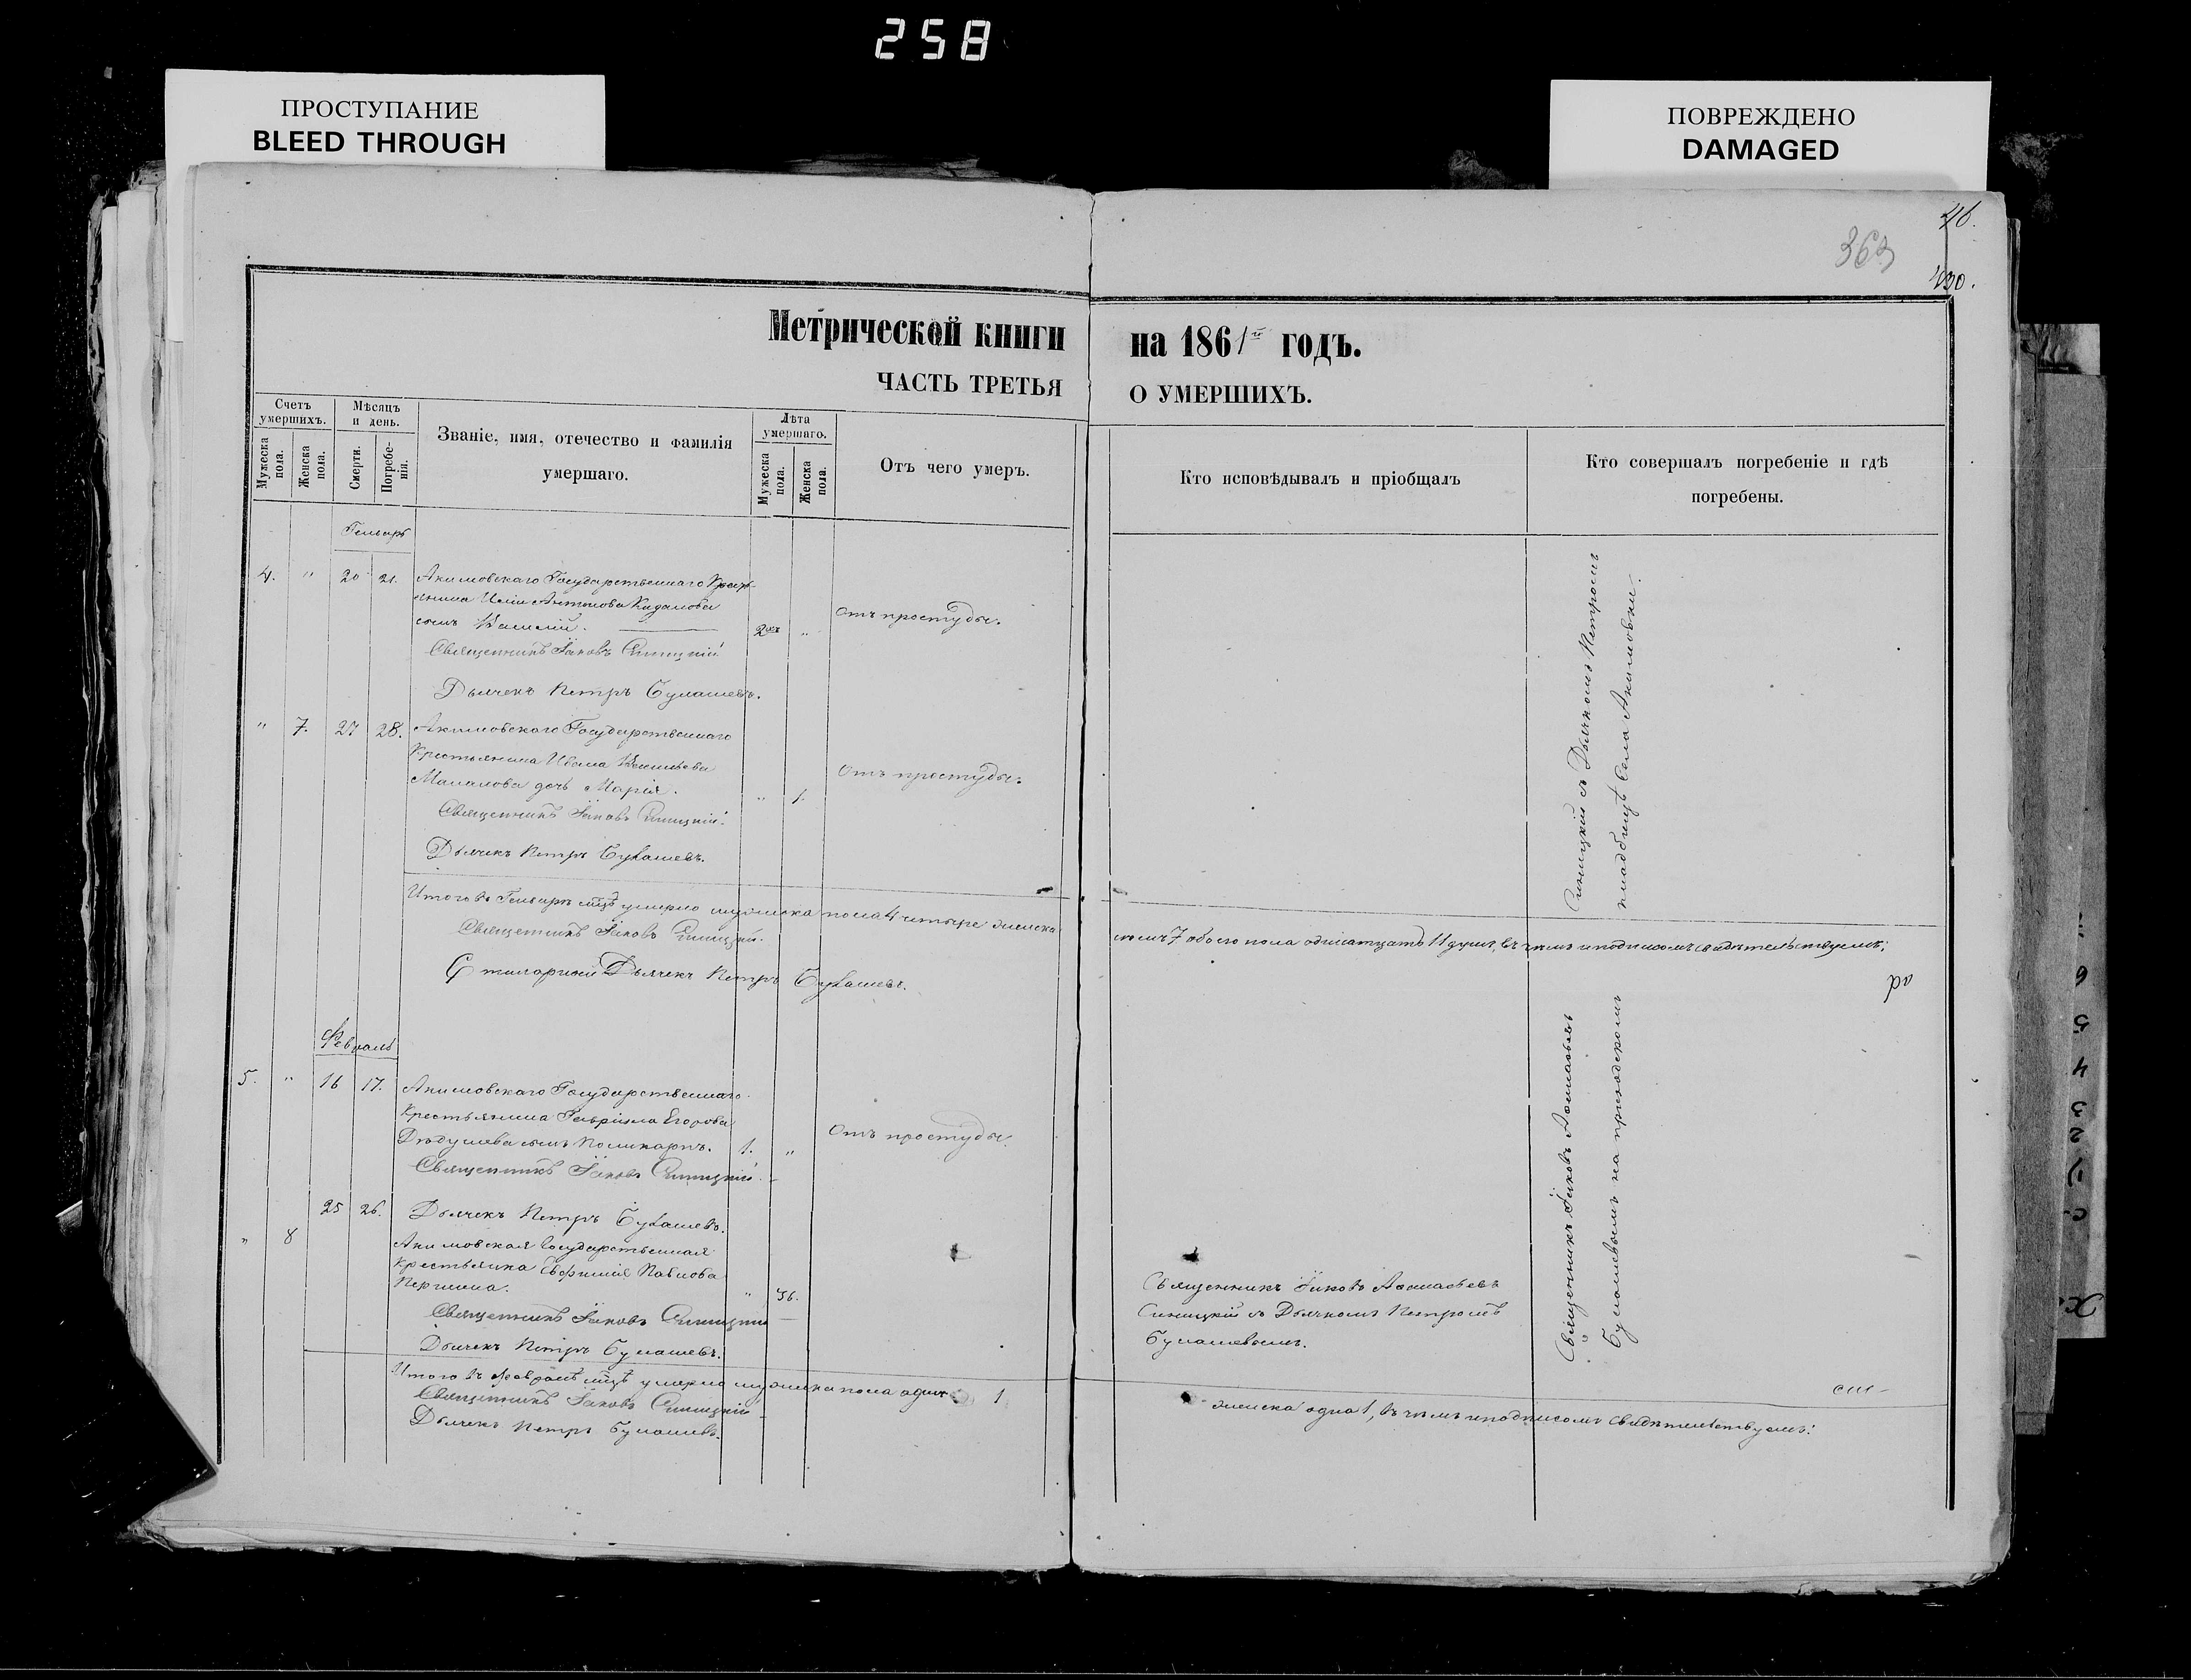 258
ПРОСТУПАНИЕ
BLEED THROUGH
ПОВРЕЖДЕНО
DAMAGED
46.
369
430.
Метрической книги на 1861го годъ.
ЧАСТЬ ТРЕТЬЯ О УМЕРШИХЪ.
Счетъ умершихъ.
Мужеска пола.
Женска пола.
Мѣсяцъ и день.
Смерти.
Погребе-
нія.
Званіе, имя, отечество и фамилія
умершаго.
Лѣта умершаго.
Мужеска пола.
Женска пола.
Отъ чего умеръ.
Кто исповѣдывалъ и пріобщалъ
Кто совершалъ погребеніе и гдѣ
погребены.
Генварь
4. " 20 21. Акимовскаго Государственнаго Кресть-
янина Иліи Антонова
сынъ Василій. 2 " Отъ простуды.
Священникъ Іаковъ Синицкій
Дьячекъ Петръ Булашевъ.
" 7. 27 28. Акимовскаго Государственнаго
Крестьянина Ивана Васильева
дочь Марія. " 1. Отъ простуды.
Священникъ Іаковъ Синицкій.
Дьячекъ Петръ Булашевъ.
Синицкій съ Дьячкомъ Петромъ
кладбищѣ села Акимовки.
Итого въ Генварѣ мцѣ умерло мужеска пола 4 четыре женска
7 обоего пола одинатцать 11 душъ, въ чемъ и подписомъ свидѣтельствуемъ:
Священникъ Іаковъ Синицкій.
Дьячекъ Петръ Булашевъ.
Февраль
5. " 16 17. Акимовскаго Государственнаго
Крестьянина Гавріила Егорова
сынъ Поликарпъ. 1. " Отъ простуды.
Священникъ Іаковъ Синицкій.
Дьячекъ Петръ Булашевъ.
" 8 25 26. Акимовская Государственная
Крестьянка Евфимія Павлова
" 56.
Священникъ Іаковъ Синицкій
Дьячекъ Петръ Булашевъ.
Священникъ Іаковъ Афанасьевъ
Синицкій съ Дьячкомъ Петромъ
Булашевымъ.
Священникъ Іаковъ Афанасьевъ
Булашевымъ на приходскомъ
Итого въ Февралѣ мцѣ умерло мужеска пола одинъ 1
женска одна 1, въ чемъ и подписомъ свидѣтельствуемъ:
Священникъ Іаковъ Синицкій
Дьячекъ Петръ Булашевъ.